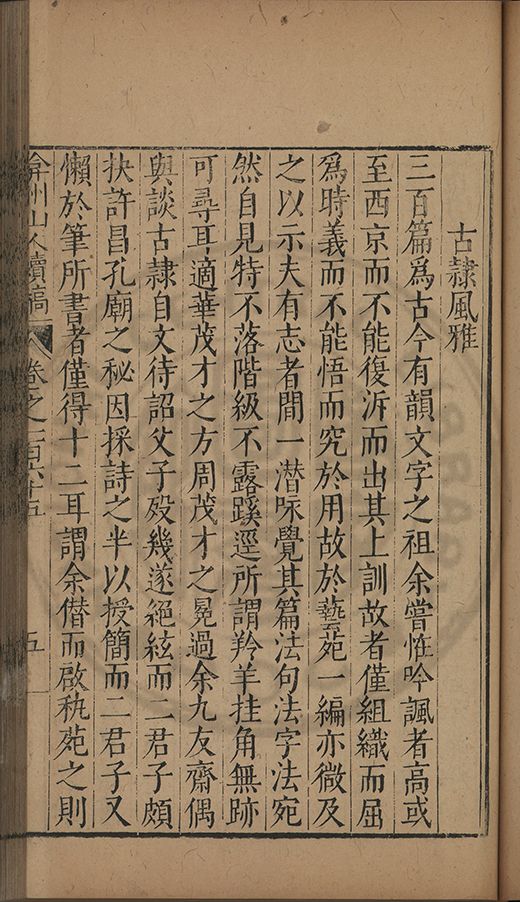 古隸風雅
三百篇爲古今有韻文字之祖余嘗恠吟諷者高或
至西京而不能復泝而出其上訓故者僅組織而屈
爲時義而不能悟而究於用故於藝苑一編亦微及
之以示夫有志者間一潜咏覺其篇法句法字法宛
然自見特不落階級不露蹊逕所謂羚羊挂角無跡
可尋耳適華茂才之方周茂才之冕過余九友齋偶
與談古隸自文待詔父子歿幾遂絕絃而二君子頗
抉許昌孔廟之秘因採詩之半以授簡而二君子又
懶於筆所書者僅得十二耳謂余僣而啟秇苑之則
弇州山人續稿 卷之一百六十五 五